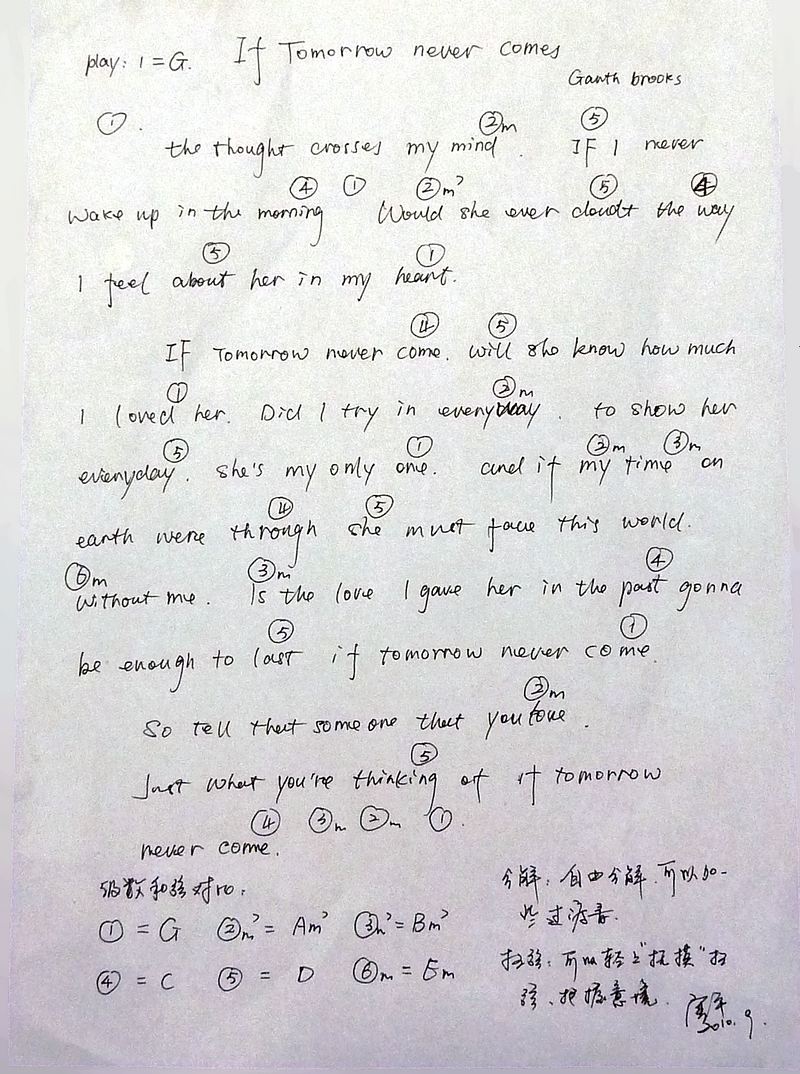 play: 1 = G. If Tomorrow never comes
Ganth brooks
① . ②m ⑤
the thought crosses my mind . IF I never
④ ① ②m⁷ ⑤ ④
wake up in the morning Would she ever doudt the way
⑤ ①
I feel about her in my heart.
④ ⑤
IF Tomorrow never come. will she know how much
① ②m
I loved her. Did I try in everyway . to show her
⑤ ① ②m ③m
everyday . she's my only one. and if my time on
④ ⑤
earth were through she must face this world.
⑥m ③m ④
without me . Is the love I gave her in the past gonna
⑤ ①
be enough to last if tomorrow never come.
②m
So tell that someone that you love .
⑤
Just what you're thinking of if tomorrow
④ ③m ②m ① .
never come.
级数和弦对照:
① = G ②m⁷ = Am⁷ ③m⁷ = Bm⁷
④ = C ⑤ = D ⑥m = Em
分解: 自由分解.可以加一
些过渡音.
扫弦: 可以轻上"抚摸"扫
弦、把握意境.
2010.9.